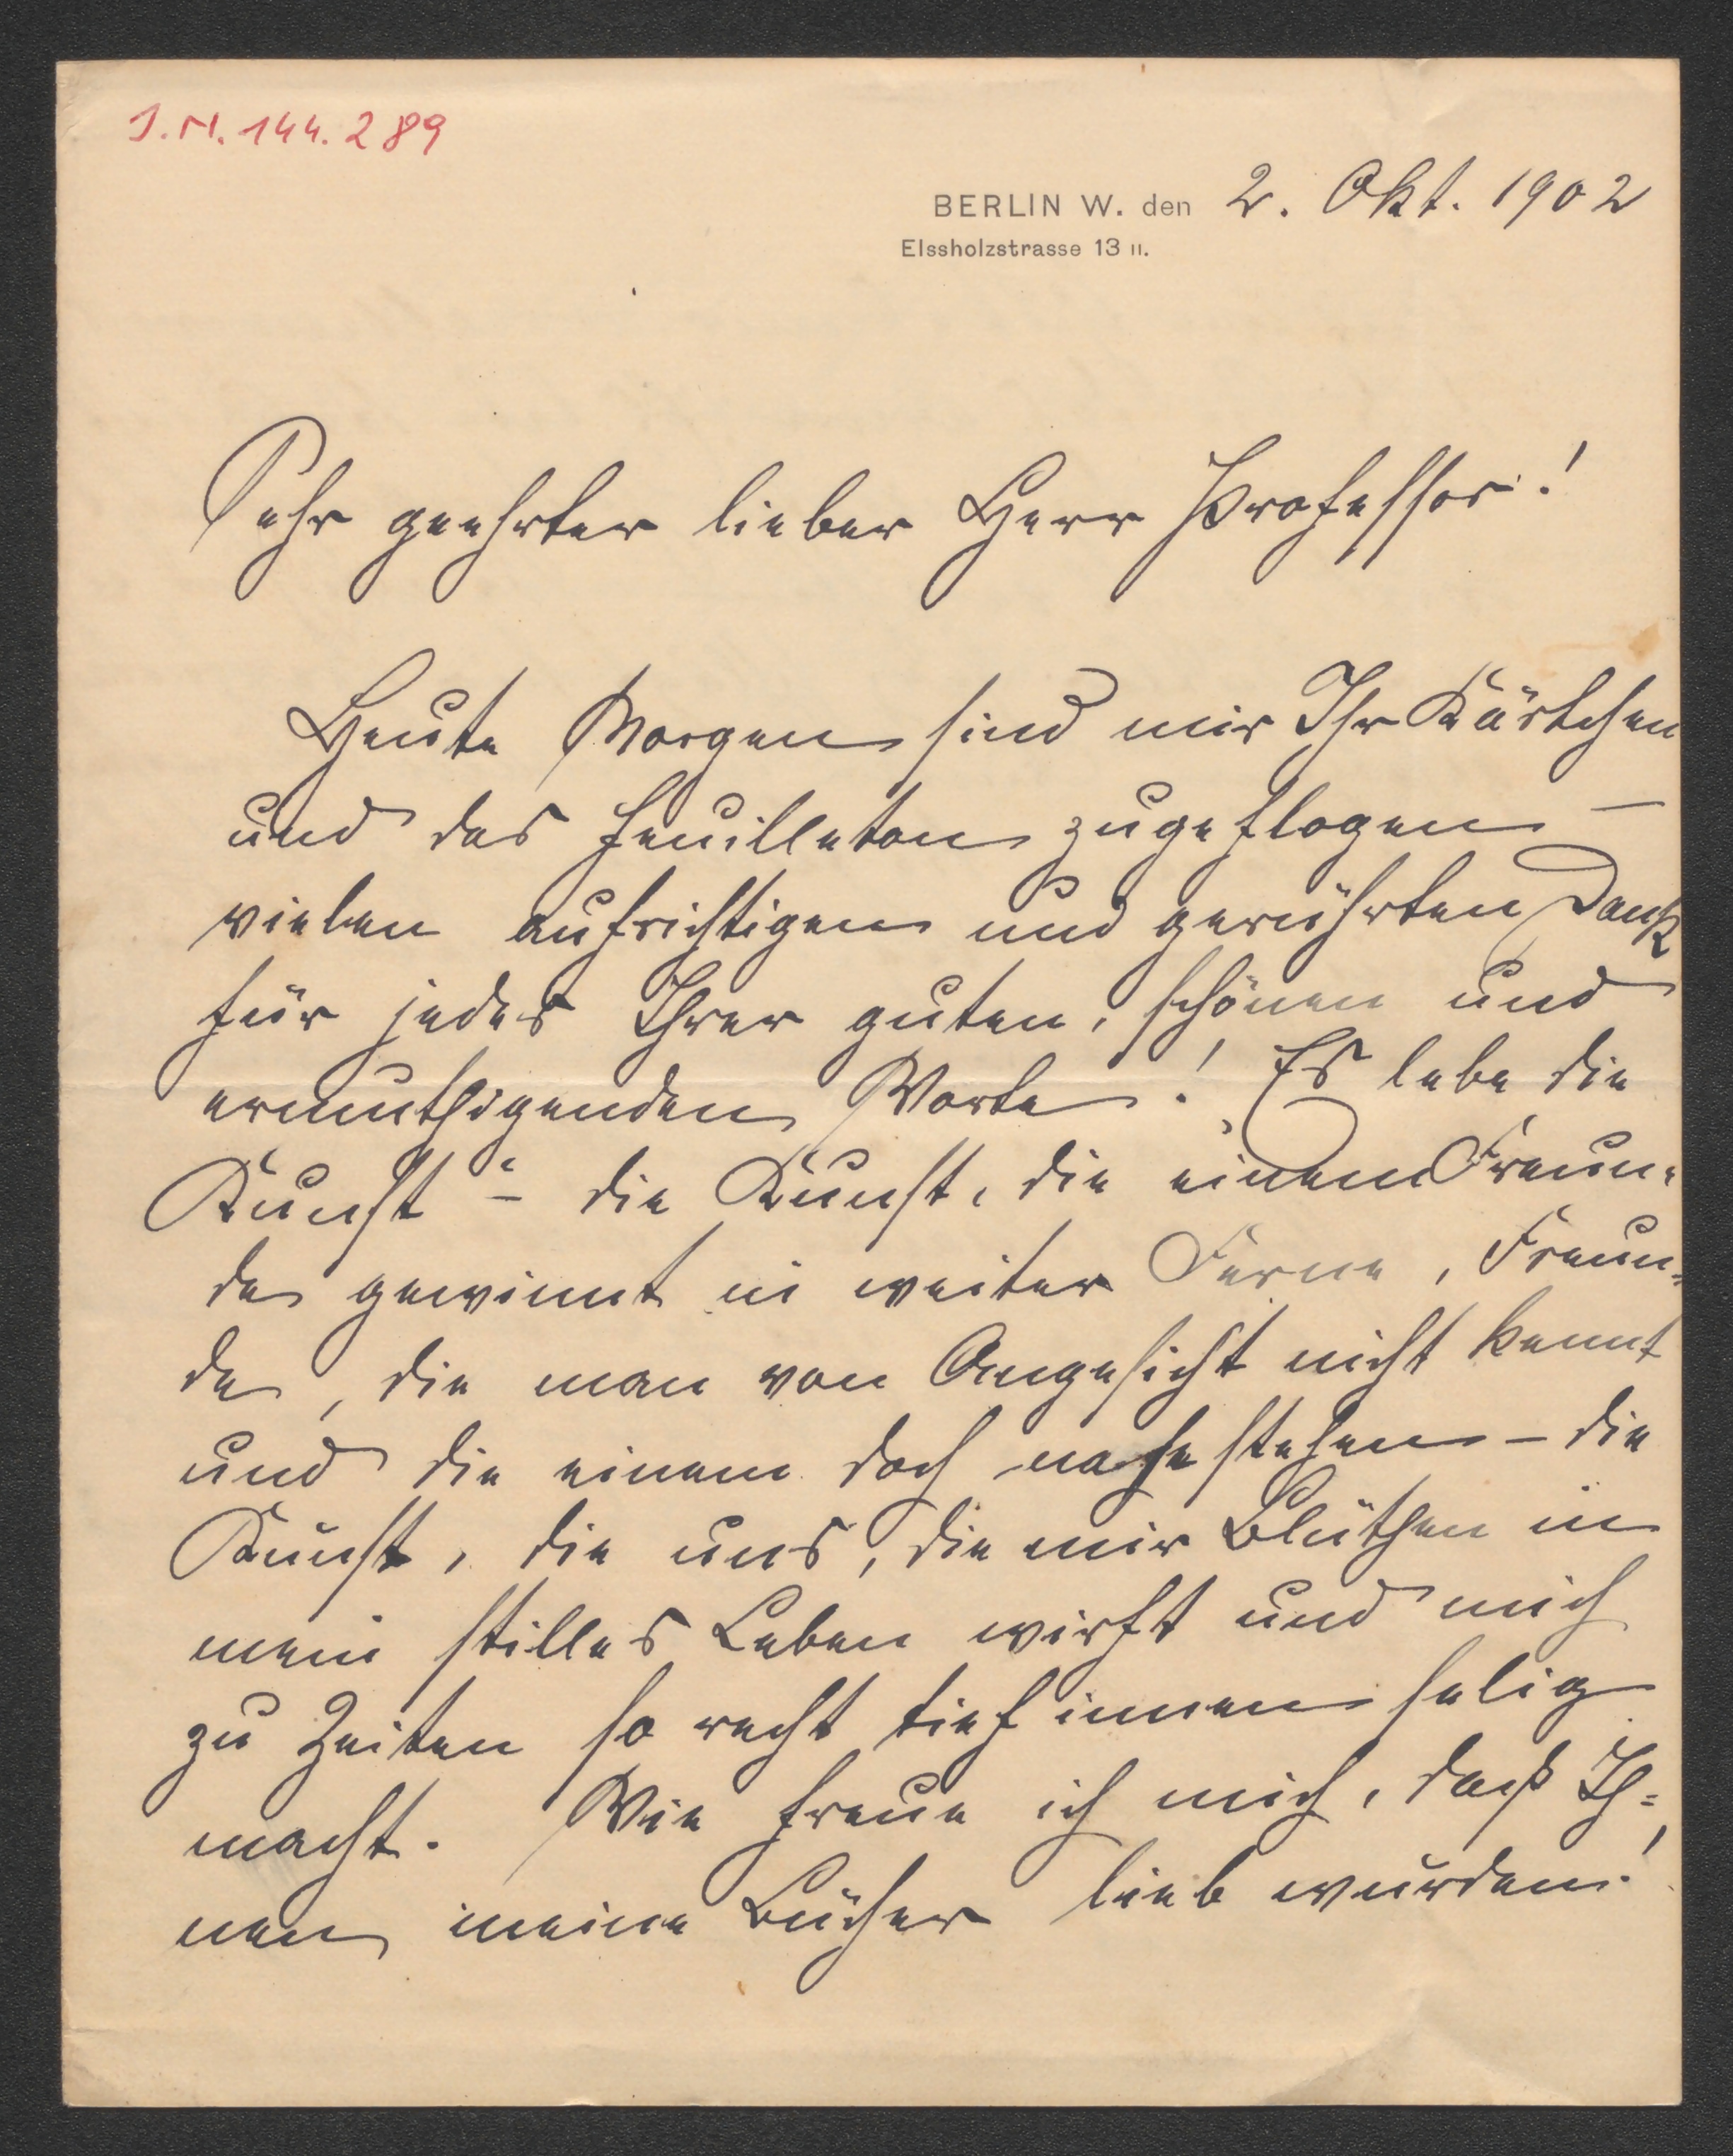 J.N. 144.289
BERLIN W. den 2. Okt. 1902
Elssholzstrasse 13 II.
Sehr geehrter lieber Herr Professor!
Heute Morgen sind mir Ihr Kärtchen
und das Feuilleton zugeflogen –
vielen aufrichtigen und gerührten Dank
für jedes Ihrer guten, schönen und
ermuthigenden Worte! Es lebe die
Kunst – die Kunst, die einem Freun-
de gewinnt in weiter Ferne, Freun-
de, die man von Angesicht nicht kennt
und die einem doch nahe stehen – die
Kunst, die uns, die mir Blüthen in
mein stilles Leben wirft und mich
zu Zeiten so recht tief innen selig
macht. Wie freue ich mich, daß Ih-
nen meine Bücher lieb wurden!